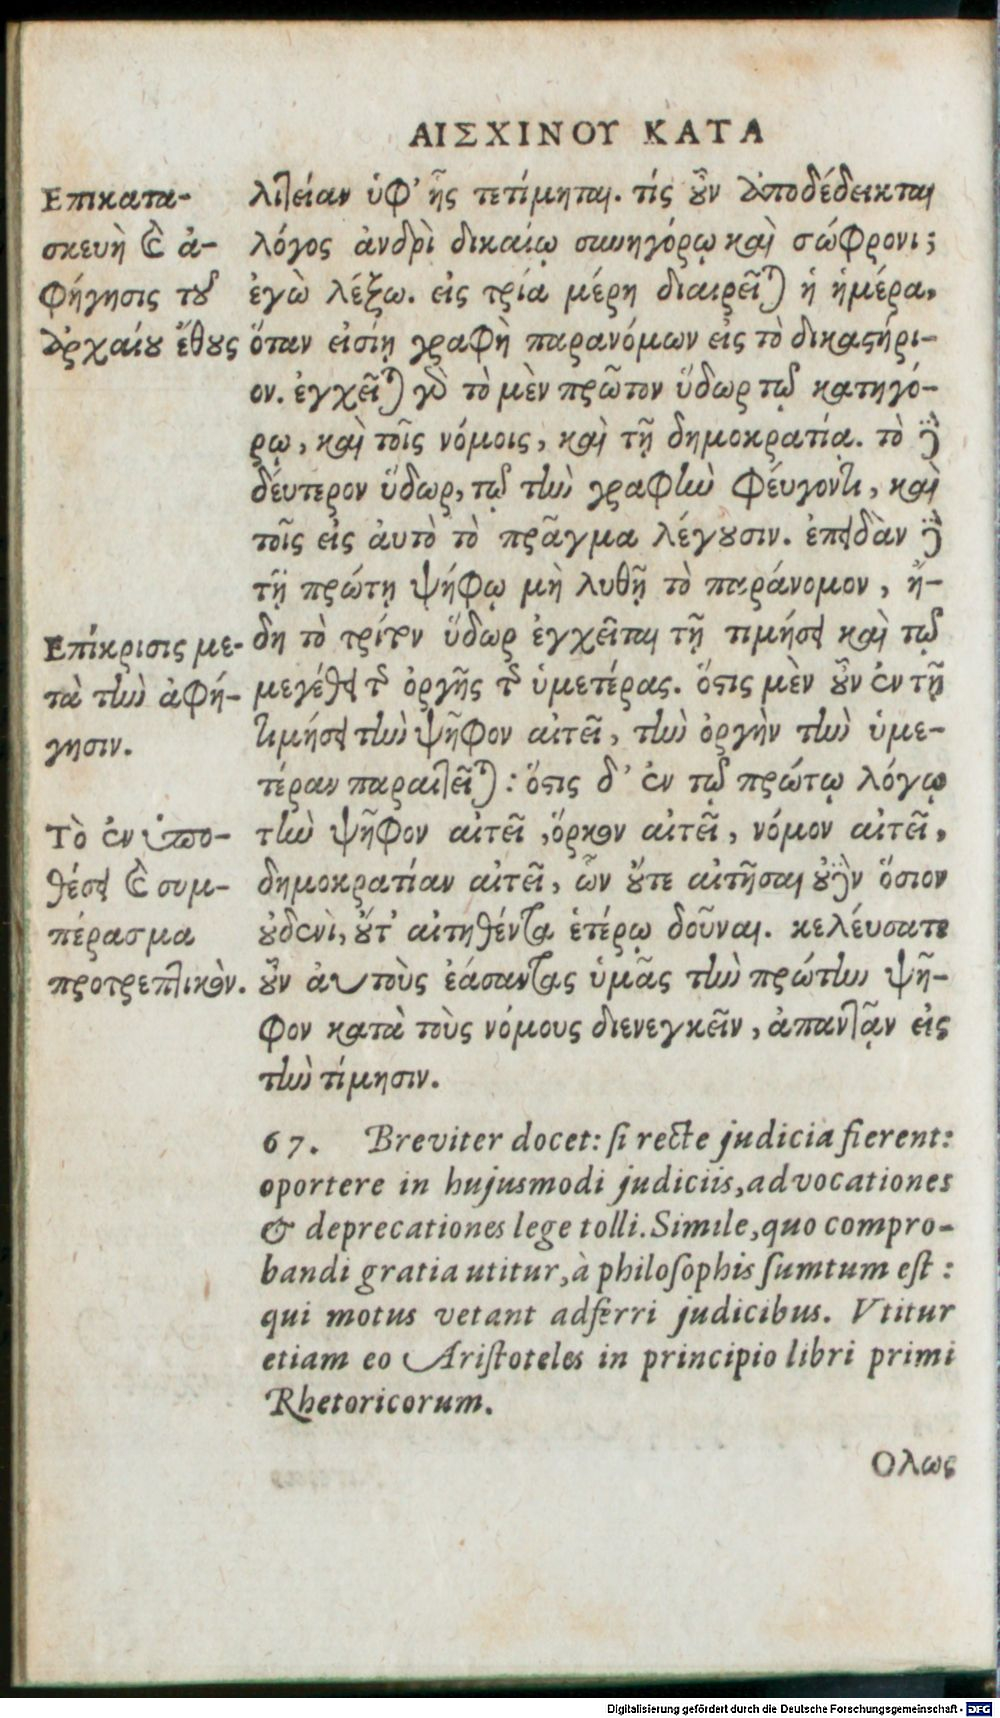 ΑΙΣΧΙΝΟΥ ΚΑΤΑ
Επικατα-
σκευὴ καὶ ἀ-
φήγησις τοῦ
ἀρχαίου ἔθους
λιτείαν ὑφ' ἧς τετίμηται. τίς οὖν ἀποδέδεικται
λόγος ἀνδρὶ δικαίῳ συνηγόρῳ καὶ σώφρονι;
ἐγὼ λέξω. εἰς τρία μέρη διαιρεῖται ἡ ἡμέρα,
ὅταν εἰσίῃ γραφὴ παρανόμων εἰς τὸ δικαστήρι-
ον. ἐγχεῖται γὰρ τὸ μὲν πρῶτον ὕδωρ τῷ κατηγό-
ρῳ, καὶ τοῖς νόμοις, καὶ τῇ δημοκρατίᾳ. τὸ δὲ
δεύτερον ὕδωρ, τῷ τὴν γραφὴν φεύγοντι, καὶ
τοῖς εἰς αὐτὸ τὸ πρᾶγμα λέγουσιν. ἐπειδὰν δὲ
τῇ πρώτῃ ψήφῳ μὴ λυθῇ τὸ παράνομον, ἤ-
Επίκρισις με-
τὰ τὴν ἀφή-
γησιν.
δη τὸ τρίτον ὕδωρ ἐγχεῖται τῇ τιμήσει καὶ τῷ
μεγέθει τῆς ὀργῆς τῆς ὑμετέρας. ὅστις μὲν οὖν ἐν τῇ
τιμήσει τὴν ψῆφον αἰτεῖ, τὴν ὀργὴν τὴν ὑμε-
τέραν παραιτεῖται: ὅστις δ' ἐν τῷ πρώτῳ λόγῳ
Τὸ ἐν ὑπο-
θέσει καὶ συμ-
πέρασμα
προτρεπτικόν.
τὴν ψῆφον αἰτεῖ, ὅρκον αἰτεῖ, νόμον αἰτεῖ,
δημοκρατίαν αἰτεῖ, ὧν οὔτε αἰτῆσαι οὐδὲν ὅσιον
οὐδενὶ, οὔτ' αἰτηθέντα ἑτέρῳ δοῦναι. κελεύσατε
οὖν αὐτοὺς ἐάσαντας ὑμᾶς τὴν πρώτην ψῆ-
φον κατὰ τοὺς νόμους διενεγκεῖν, ἀπαντᾷν εἰς
τὴν τίμησιν.
67. Breviter docet: si recte judicia fierent:
oportere in hujusmodi judiciis, advocationes
& deprecationes lege tolli. Simile, quo compro-
bandi gratia utitur, à philosophis sumtum est:
qui motus vetant adferri judicibus. Vtitur
etiam eo Aristoteles in principio libri primi
Rhetoricorum.
Ολως
Digitalisierung gefördert durch die Deutsche Forschungsgemeinschaft - DFG